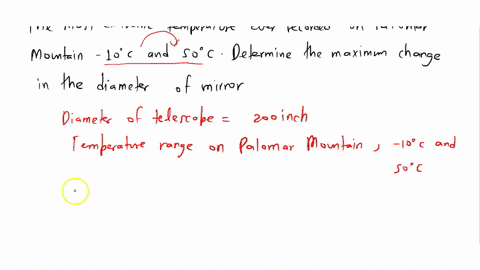 The most extreme temperature ever recorded on Palomar
Mountain -10°C and 50°C. Determine the maximum change
in the diameter of mirror
Diameter of telescope = 200 inch
Temperature range on Palomar Mountain, -10°C and
50°C